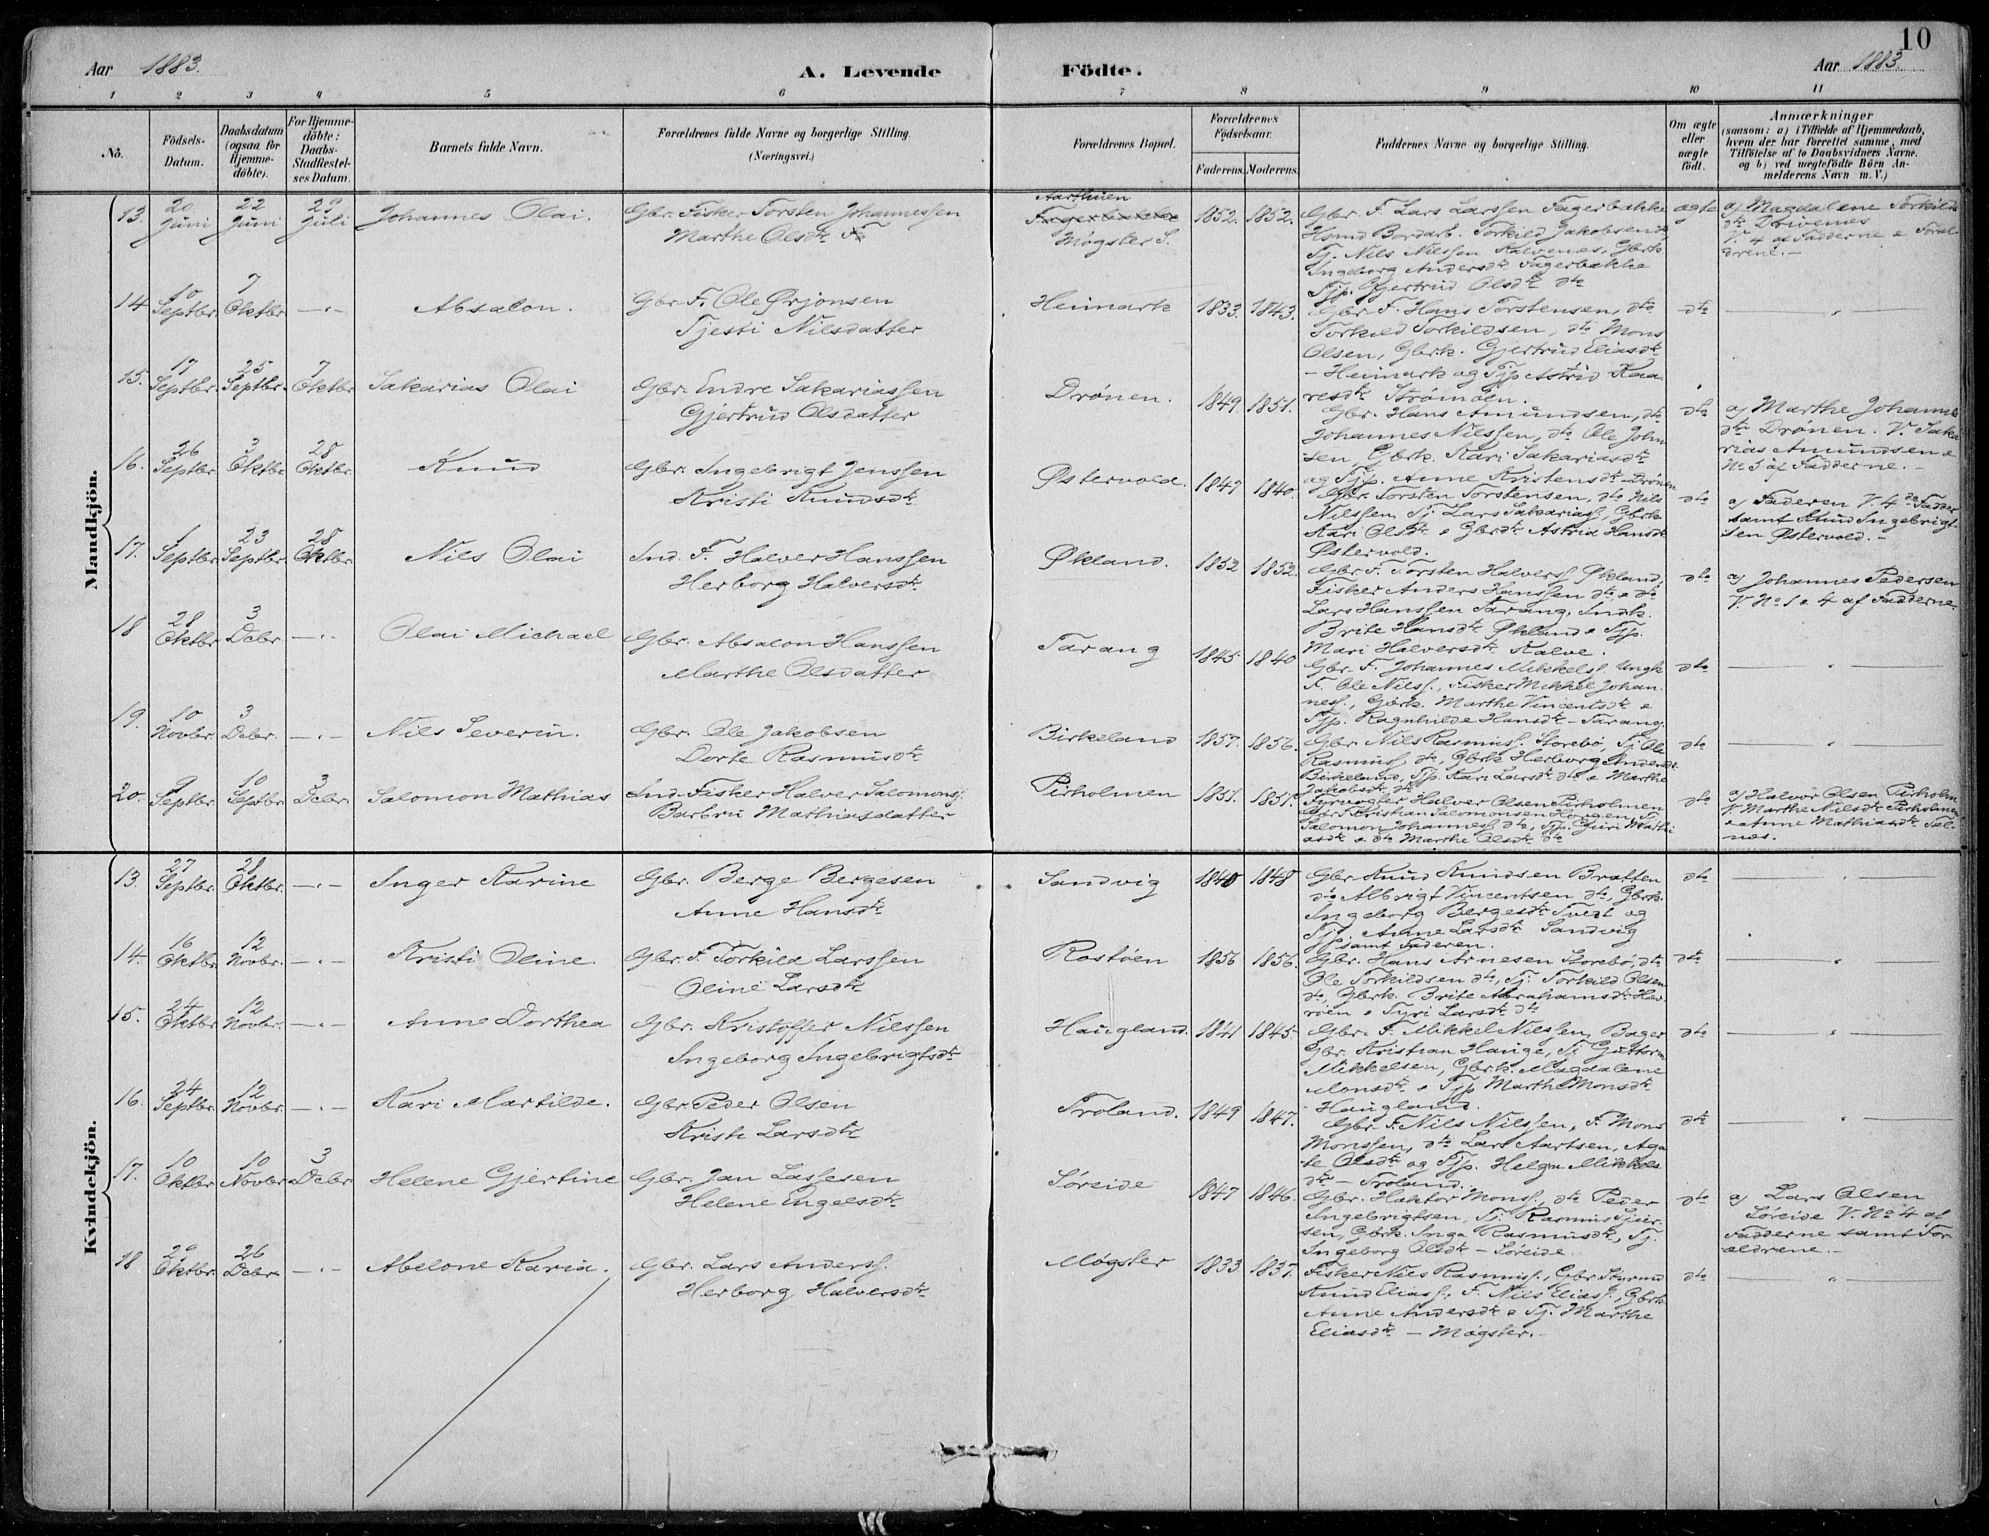 10
Aar 1883.
A. Levende Födte.
Aar 1883.
1 2 3 4 5 6 7 8 9 10 11
No.
Födsels-Datum.
Daabsdatum (ogsaa for Hjemmedöbte).
For Hjemmedöbte: Daabs-Stadfæstelses Datum.
Barnets fulde Navn.
Forældrenes fulde Navne og borgerlige Stilling.
(Næringsvei.)
Forældrenes Bopæl.
Forældrenes Födselsaar.
Faderens. Moderens.
Faddernes Navne og borgerlige Stilling.
Om ægte eller uægte födt.
Anmærkninger
(saasom: a) i Tilfælde af Hjemmedaab, hvem der har forrettet samme, med Tilföielse af to Daabsvidners Navne. og b) ved uægtefödte Börn Anmelderens Navn m. V.)
Mandkjön.
13. 20 Juni 22 Juni 29 Juli Johannes Olai.
Gbr. Fisker Torsten Johannessen
Marthe Olsdtr
Møgster S.
1852. 1852.
Gbr. F. Lars Larssen Fagerbakke
Hsmd Bordarb. Torkild Jakobsen dto
Tj. Nils Nilssen Kalvenes, Gbrk.
Ingeborg Andersdtr Fagerbakke
Tjp. Gjertrud Olsdtr dto
ægte
a) Magdalene Torkilds
dtr Drivenes
V. 4 af Fadderne & Foræl
drene.-
14 10 Septbr. 7 Oktbr -"- Absalon.
Gbr. F. Ole Ørjansen
Tjesti Nilsdatter
Heimark 1833. 1843.
Gbr. F. Hans Torstensen, dto
Torkild Torkildsen, dto Mons
Olsen, Gbrk. Gjertrud Eliasdtr
- Heimark og Tjp Astrid Kaa
resdtr Strømøen.
dto - " -
15. 17 Septbr. 25 Septbr. 7 Oktbr Sakarias Olai
Gbr. Endre Sakariassen
Gjertrud Olsdatter
Drønen. 1849. 1851.
Gbr. Hans Amundsen, dto
Johannes Nilssen, dto Ole John
sen, Gbrk. Kari Sakariasdtr
og Tjp. Anne Kristensdtr Drønen
dto
a) Marthe Johannes
dtr Drønen. V. Saka
rias Amundsen &
No 3 af Fadderne.-
16. 26 Septbr. 3 Oktbr. 28 Oktbr. Knud
Gbr. Ingebrigt Jenssen
Kristi Knudsdtr
Østervold. 1847 1840.
Gbr. Torsten Torstensen, dto Nils
Nilssen, Tj. Lars Sakariass., Gbrk
Kari Olsdtr & Gbrdtr Astrid Hansdtr
Østervold.
dto
a) Faderen V. 4de Fadder
samt Knud Ingebrigt-
sen Østervold.-
17. 1 Septbr. 23 Septbr. 28 Oktbr. Nils Olai
Ind. F. Halver Hanssen
Herborg Halversdtr
Økland. 1852 1852.
Gbr. F. Torsten Halvers. Økland,
Fisker Anders Hanssen dto & dto
Lars Hanssen Tarang, Indk.
Brite Hansdtr Økland & Tjp.
Mari Halversdtr Kalve.
dto
a) Johannes Pedersen
V. No 1 & 4 af Fadderne
18 28 Oktbr. 3 Debr. -"- Olai Michael
Gbr. Absalon Hanssen
Marthe Olsdatter
Tarang 1845 1840
Gbr. F. Johannes Mikkels. Ungk.
F. Ole Nilss., Fisker Mikkel Johan-
ness., Gbrk. Marthe Vincentsdtr &
Tjp. Ragnhilde Hansdtr - Tarang.
dto - " -
19. 10 Novbr. 3 Debr. -"- Nils Severin.
Gbr. Ole Jakobsen
Dorte Rasmusdtr
Birkeland 1857. 1856.
Gbr. Nils Rasmuss. Storebø, Tj. Ole
Rasmuss. dto, Gbrk Herborg Andersdtr
Birkeland, Tjp. Kari Larsdtr dto & Marthe
Jakobsdtr dto
dto - " -
20. 9 Septbr. 10 Septbr. 3 Debr. Salomon Mathias
Ind. Fisker Halver Salomons.
Barbru Mathiasdatter
Pirholmen 1851. 1851.
Fyrvogter Halver Olsen Pirholmen
Gbr. F. Kristian Salomonsen Horgen, Tj.
Salomon Johanness. dto, Tjp. Guri Mathi
asdtr & dto Marthe Olsdtr dto
dto
a) Halvor Olsen Pirholm.
V. Marthe Nilsdtr Pirholmen
& Anne Mathiasdtr Tel-
nes.
Kvindekjön.
13. 27 Septbr. 28 Oktbr. -"- Inger Karine
Gbr. Berge Bergesen
Anne Hansdtr
Sandvig 1840 1848
Gbr. Knud Knudsen Bratten
dto Albrigt Vincentsen dto, Gbrk.
Ingeborg Bergesdtr Tvedt og
Tjp. Anne Larsdtr Sandvig
samt Faderen.
dto - " -
14. 16 Oktbr. 12 Novbr. -"- Kristi Oline
Gbr. F. Torkild Larssen
Oline Larsdtr
Rostøen 1856 1856.
Gbr. Hans Arnesen Storebø, dto
Ole Torkildsen dto, Tj. Torkild Olsen
dto, Gbrk. Brite Abrahamsdtr Hev-
røen & Tyri Larsdtr dto
dto - " -
15. 24 Oktbr 12 Novbr. -"- Anne Dorthea
Gbr. Kristoffer Nilssen
Ingeborg Ingebrigtsdtr
Haugland. 1841 1845.
Gbr. F. Mikkel Nilssen, Bager
Gbr. Kristian Hauge, Tj. Guttorm
Mikkelsen, Gbrk. Magdalene
Monsdtr & Tjp. Marthe Monsdtr
Haugland.
dto - " -
16. 24 Septbr. 12 Novbr. -"- Kari Martilde.
Gbr. Peder Olsen
Kristi Larsdtr
Troland. 1849 1847.
Gbr. F. Nils Nilssen, F. Mons
Monssen, dto Lars Aartsen, Aga-
te Olsdtr og Tjp. Helga Mikkels
dtr - Troland.
dto - " -
17. 10 Oktbr 10 Novbr 3 Debr Helene Gjertine
Gbr. Jan Lassesen
Helene Engelsdtr
Søreide 1847 1846.
Gbr. Haktor Monss., dto Peder
Ingebrigtsen, Tj. Rasmus Tjer-
sen, Gbrk. Inga Rasmusdtr, Tj.
Ingeborg Olsdtr - Søreide.
dto
a) Lars Olsen
Søreide V. No 4 af
Fadderne samt For-
ældrene.-
18 29 Oktbr. 26 Debr. -"- Abelone Karia.
Gbr. Lars Anderss.
Herborg Halversdtr
Møgster 1833 1837.
Fisker Nils Rasmuss., Gbr.
Knud Eliass., F. Nils Eliass., Gbrk.
Anne Andersdtr & Tj. Marthe
Eliasdtr - Møgster.-
dto - " -